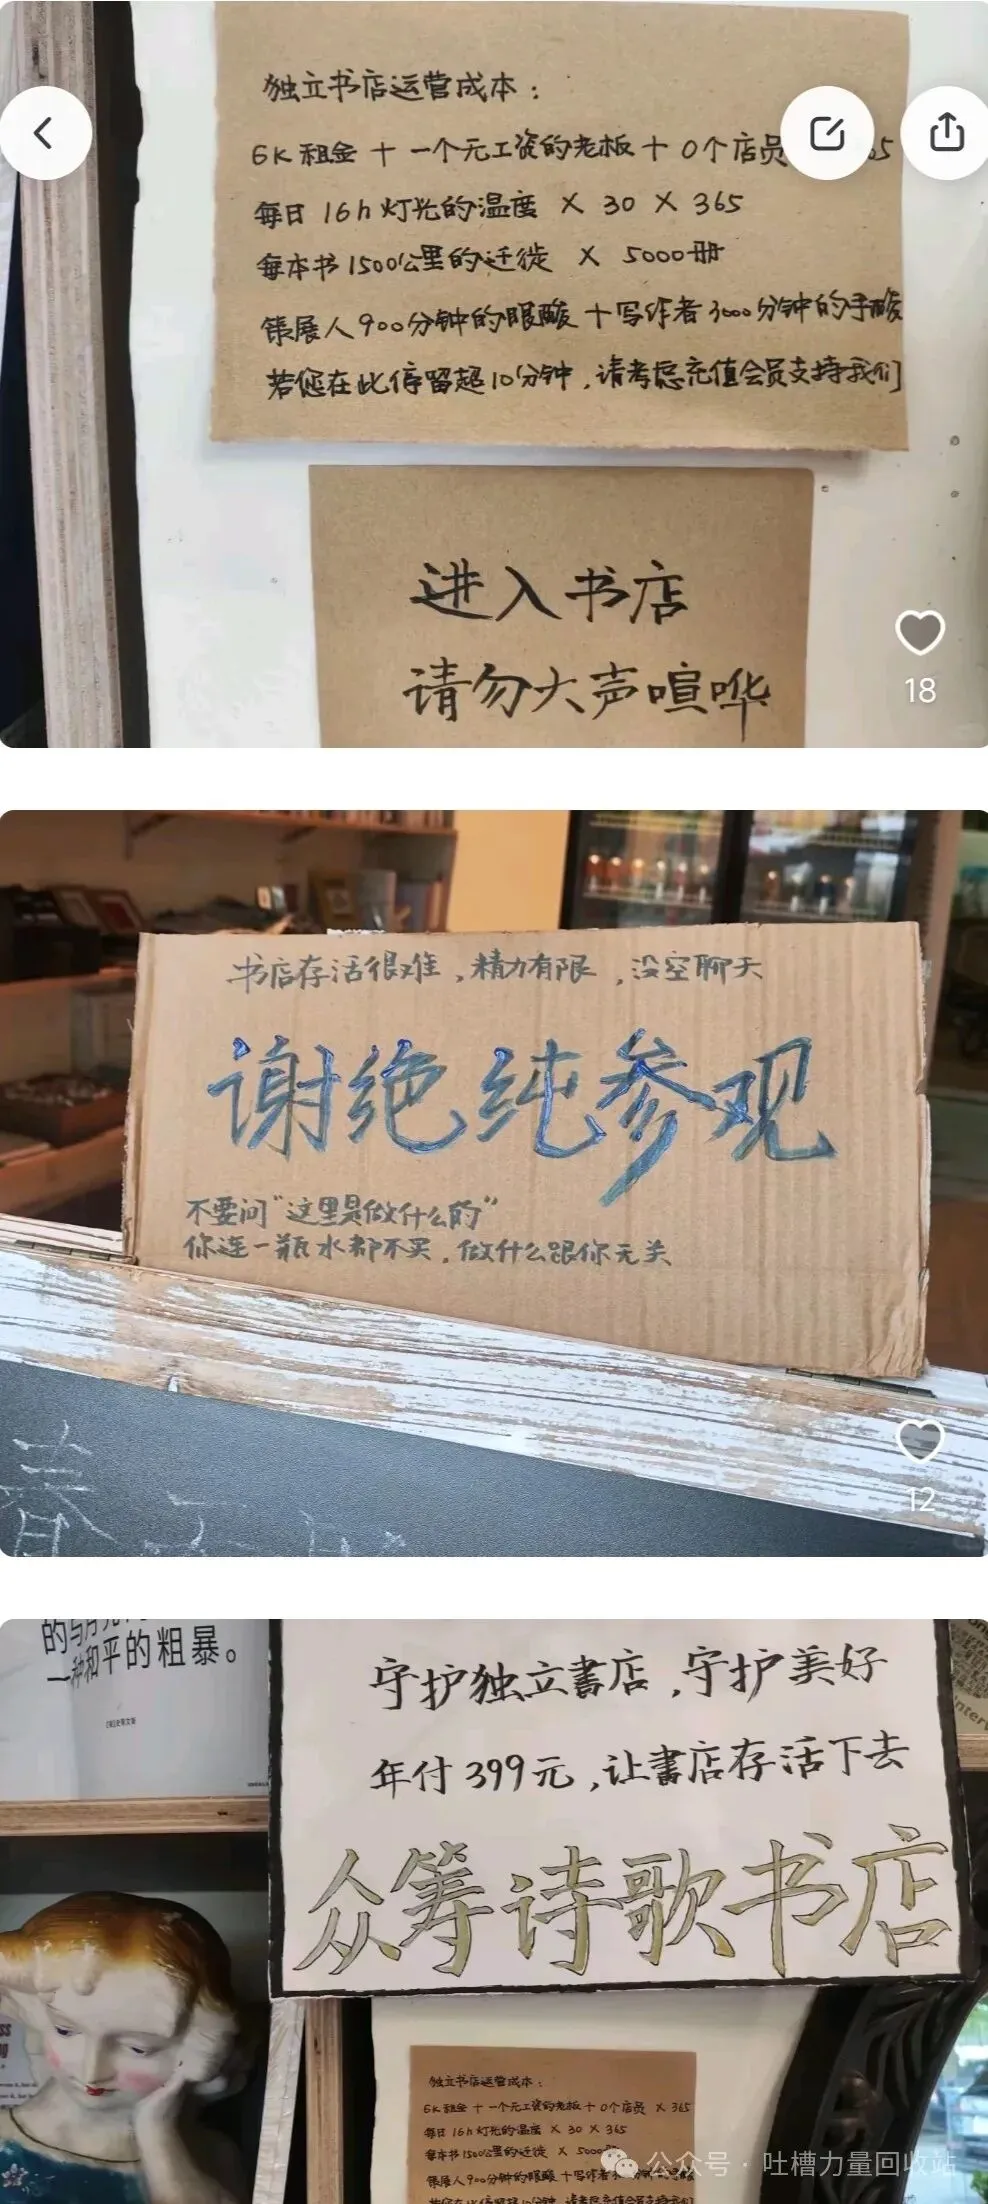 独立书店运营成本：
6K租金 + 一个元工资的老板 + 0个店员
每日 16h 灯光的温度 × 30 × 365
每本书1500公里的迁徙 × 5000册
策展人900分钟的眼酸 + 写作者3000分钟的手酸
若您在此停留超10分钟，请考虑充值会员支持我们
进入书店
请勿大声喧哗
18
书店存活很难，精力有限，没空聊天
谢绝纯参观
不要问“这里是做什么的”
你连一瓶水都不买，做什么跟你无关
12
一种和平的粗暴。
守护独立書店，守护美好
年付399元，让書店存活下去
众筹诗歌书店
独立书店运营成本：
6K租金 + 一个元工资的老板 + 0个店员 × 365
每日 16h 灯光的温度 × 30 × 365
每本书1500公里的迁徙 × 5000
策展人900分钟的眼酸 + 写作者
公众号 · 吐槽力量回收站